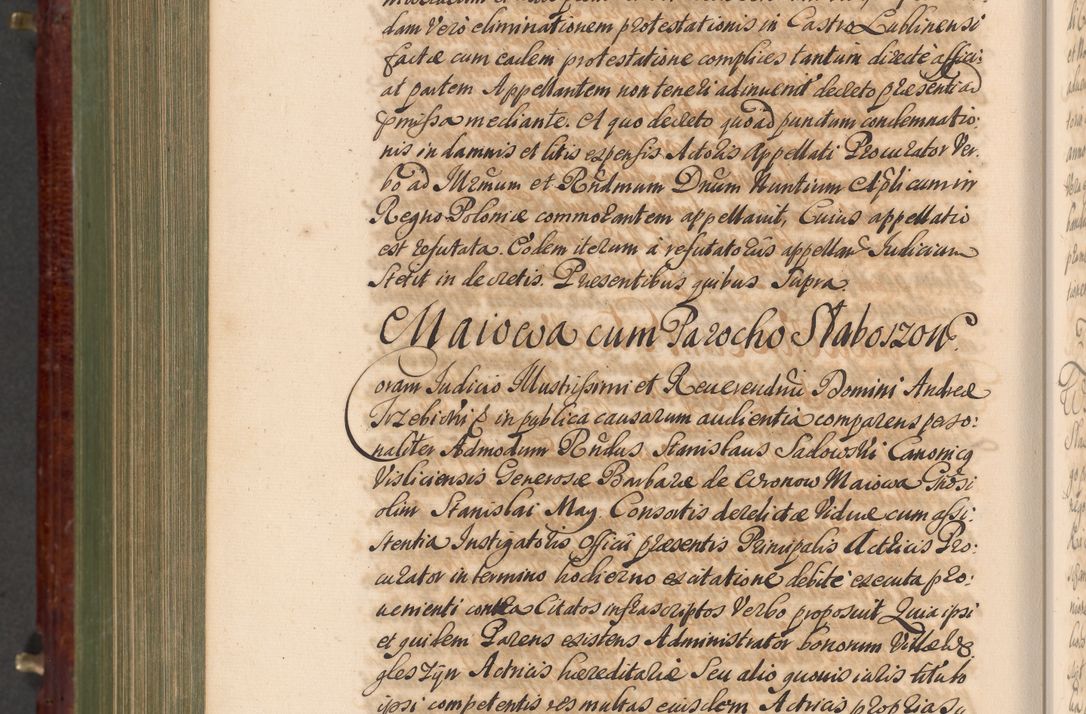 dam Vero eliminationem protestationis in Castro Lublinensi
factæ cum eadem protestatione complices tantum directè affici:
at partem Appellantem non teneri adinuenit decreto præsenti ad
præmissa mediante. A quo decreto quo ad punctum condemnatio:
nis in damnis et litis expensis Actoris Appellati Procurator Ver:
bo ad Illrmum et Rndmum Dnum Nuntium Aplicum in
Regno Poloniæ commorantem appellauit, Cuius appellatio
est refutata. Eodem iterum a refutatoriis appellan Judicium
stetit in decretis. Præsentibus quibus supra.
Maiowa cum Parocho Slaboszow
Coram Judicio Illustrissimi et Reuerendmi Domini Andreæ
Trzebicki in publica causarum audientia comparens perso:
naliter Admodum Rndus Stanislaus Sadowski Canonicq
Visliciensis Generosæ Barbaræ de Wronow Maiowa Gnosi
olim Stanislai May Consortis derelictæ Viduæ cum assi:
stentia Instigatoris Officii præsentis Principalis Actricis Pro:
curator in termino hodierno ex citatione debitè executa pro:
uenienti contra Citatos infrascriptos Verbo proposuit Quia ipsi
et quidem Parens existens Administrator bonorum Villæ We
gleszyn Actricis hæreditariæ Seu alio quouis iuris titulo
ipsi competentis res multas eiusdem Actricis proprias